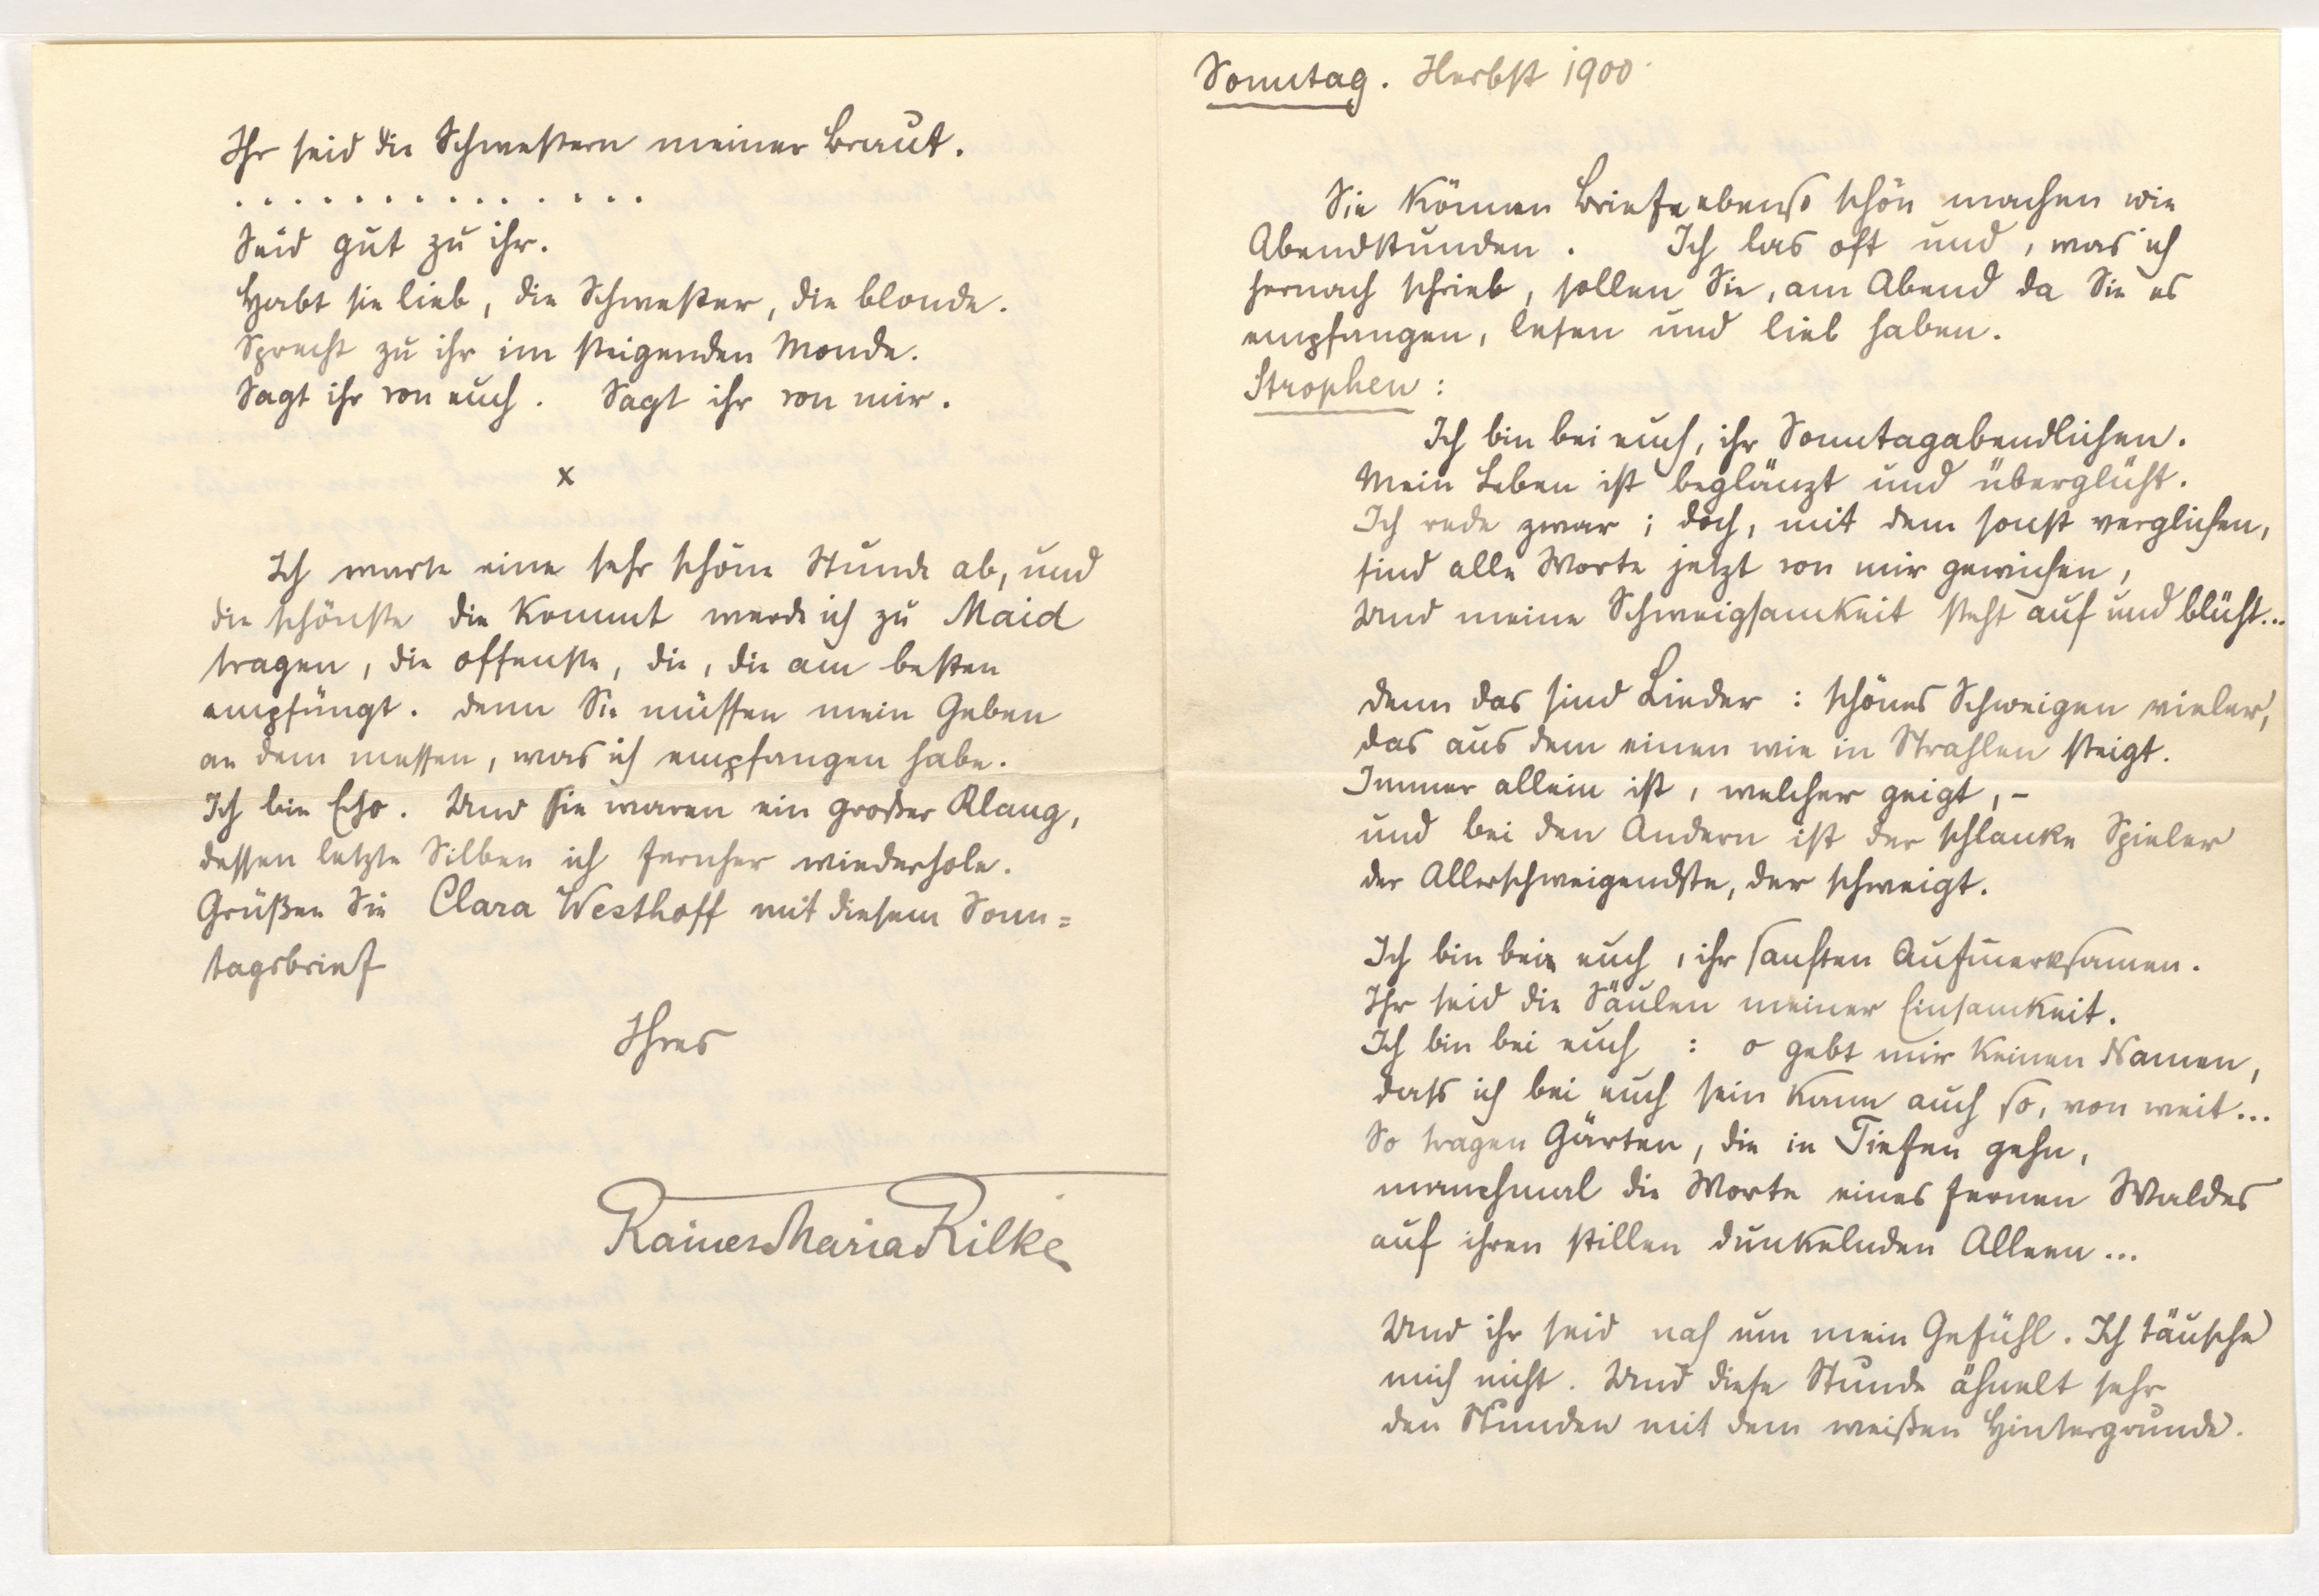 Ihr seid die Schwestern meiner Braut.
. . . . . . . . . . . . . . .
Seid gut zu ihr.
Habt sie lieb, die Schwester, die blonde.
Sprecht zu ihr im steigenden Monde.
Sagt ihr von euch. Sagt ihr von mir.
x
Ich warte eine sehr schöne Stunde ab, und
die schönste die kommt werde ich zu Maid
tragen, die offenste, die, die am besten
empfängt. denn Sie müssen mein Geben
an dem messen, was ich empfangen habe.
Ich bin Echo. Und Sie waren ein großer Klang,
dessen letzte Silben ich fernher wiederhole.
Grüßen Sie Clara Westhoff mit diesem Sonn=
tagsbrief
Ihres
Rainer Maria Rilke
Sonntag. Herbst 1900.
Sie können Briefe ebenso schön machen wie
Abendstunden. Ich las oft und, was ich
hernach schrieb, sollen Sie, am Abend da Sie es
empfangen, lesen und lieb haben.
Strophen:
Ich bin bei euch, ihr Sonntagabendlichen.
Mein Leben ist beglänzt und überglüht.
Ich rede zwar; doch, mit dem sonst verglichen,
sind alle Worte jetzt von mir gewichen,
Und meine Schweigsamkeit steht auf und blüht...
denn das sind Lieder: schönes Schweigen vieler,
das aus dem einen wie in Strahlen steigt.
Immer allein ist, welcher geigt, –
und bei den Andern ist der schlanke Spieler
der Allerschweigendste, der schweigt.
Ich bin bei euch, ihr sanften Aufmerksamen.
Ihr seid die Säulen meiner Einsamkeit.
Ich bin bei euch: o gebt mir keinen Namen,
dass ich bei euch sein kann auch so, von weit...
So tragen Gärten, die in Tiefen gehn,
manchmal die Worte eines fernen Waldes
auf ihren stillen dunkelnden Alleen...
Und ihr seid nah um mein Gefühl. Ich täusche
mich nicht. Und diese Stunde ähnelt sehr
den Stunden mit dem weißen Hintergrunde.